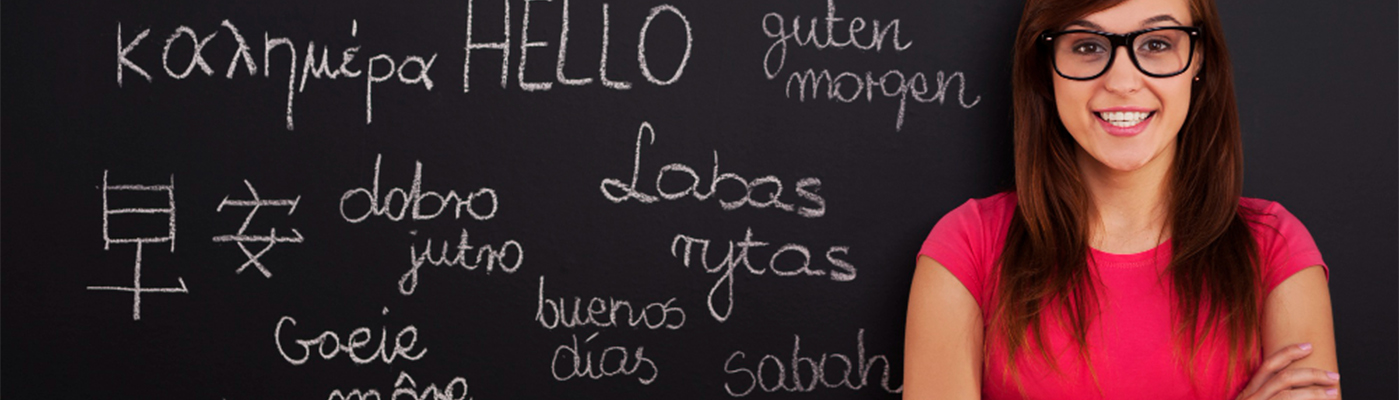 καλημέρα
HELLO
guten
morgen
早安
dobro
jutro
Labas
rytas
Goeie
môre
buenos
días
sabah